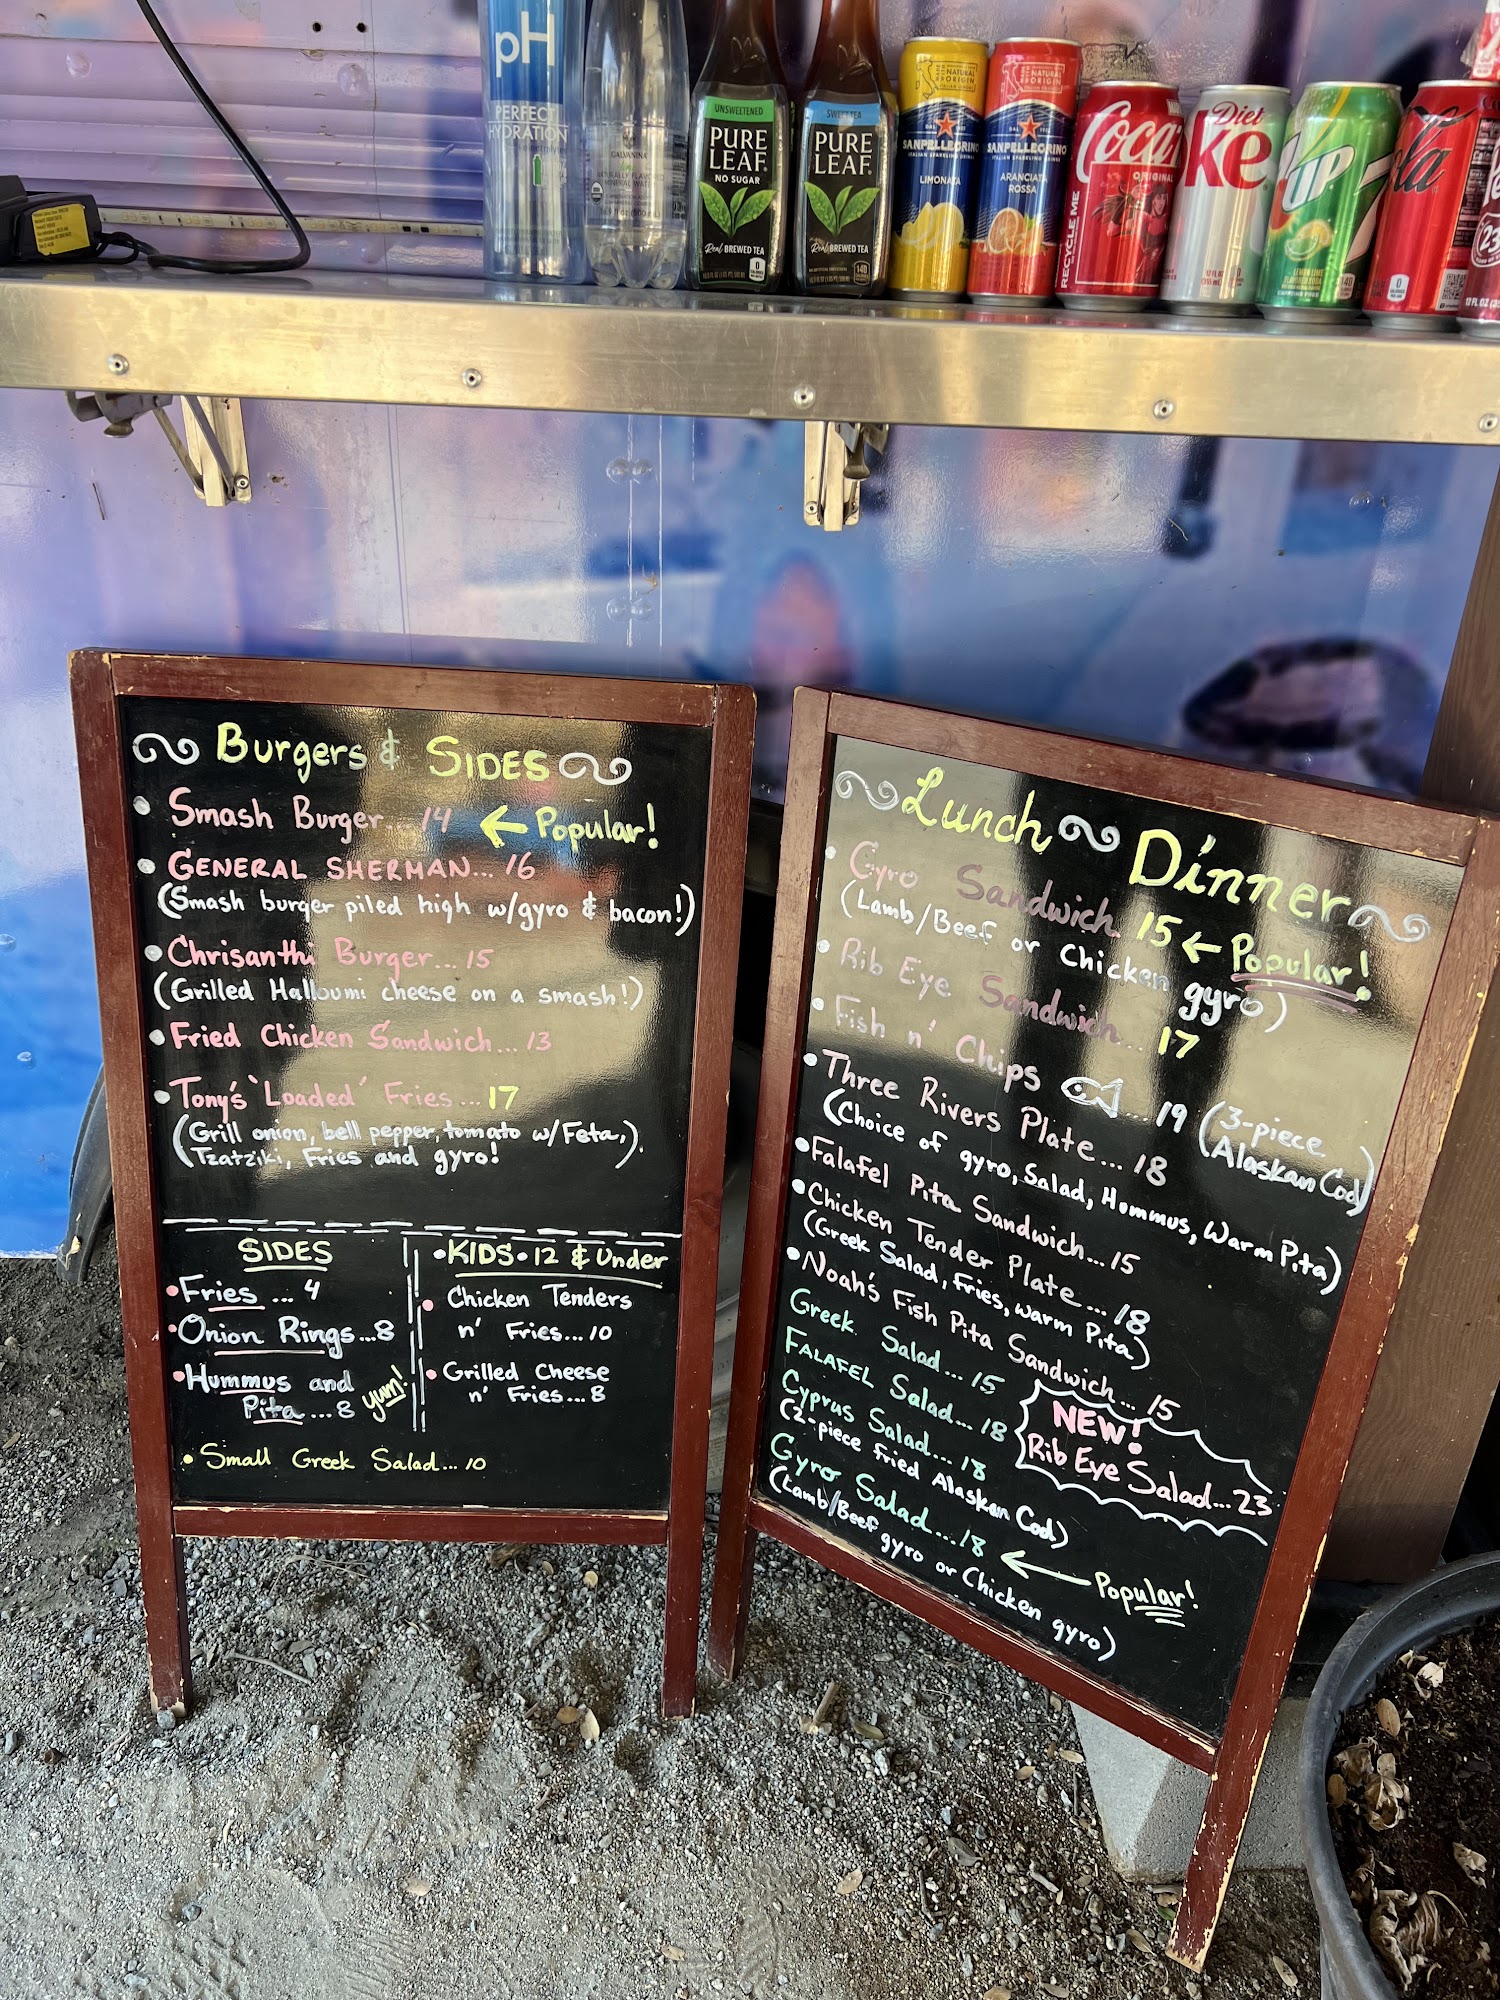 pH
PERFECT
HYDRATION
GALVANINA
UNSWEETENED
PURE
LEAF
NO SUGAR
Real BREWED TEA
SWEET TEA
PURE
LEAF
Real BREWED TEA
SANPELLEGRINO
LIMONATA
NATURAL
ORIGIN
SANPELLEGRINO
ARANCIATA
ROSSA
Coca
ORIGINAL
RECYCLE ME
Diet
Ke
7UP
LEMON LIME
CAFFEINE FREE
7
Cola
23
Burgers & SIDES
• Smash Burger... 14 ← Popular!
• GENERAL SHERMAN... 16
(Smash burger piled high w/gyro & bacon!)
• Chrisanthi Burger... 15
(Grilled Halloumi cheese on a smash!)
• Fried Chicken Sandwich... 13
• Tony's 'Loaded' Fries... 17
(Grill onion, bell pepper, tomato w/Feta,
Tzatziki, Fries and gyro!)
SIDES
• Fries ... 4
• Onion Rings...8
• Hummus and
Pita ...8 yum!
• KIDS • 12 & Under
• Chicken Tenders
n' Fries... 10
• Grilled Cheese
n' Fries...8
• Small Greek Salad... 10
Lunch ~ Dinner
• Gyro Sandwich. 15 ← Popular!
(Lamb/Beef or Chicken gyro)
• Rib Eye Sandwich... 17
• Fish n' Chips ... 19 (3-piece
Alaskan Cod)
• Three Rivers Plate... 18
(Choice of gyro, Salad, Hummus, Warm Pita)
• Falafel Pita Sandwich... 15
• Chicken Tender Plate... 18
(Greek Salad, Fries, warm Pita)
• Noah's Fish Pita Sandwich... 15
Greek Salad... 15
FALAFEL Salad... 18
Cyprus Salad... 18
(2-piece fried Alaskan Cod)
Gyro Salad... 18 ← Popular!
(Lamb/Beef gyro or Chicken gyro)
NEW!
Rib Eye Salad...23